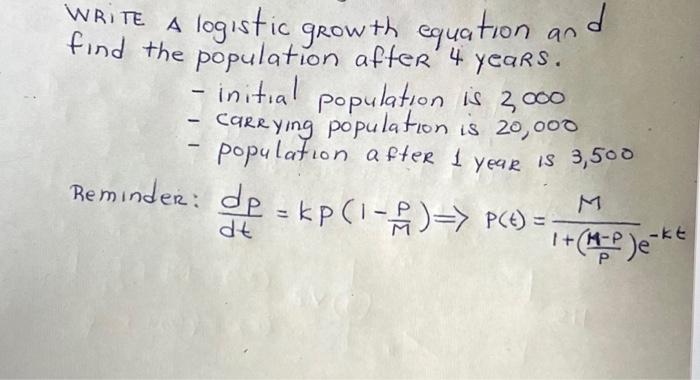 WRITE A logistic growth equation and
find the population after 4 years.
- initial population is 2,000
- carrying population is 20,000
- population after 1 year is 3,500
Reminder: dp/dt = kp(1-P/M) => P(t) = M/(1+(M-P/P)e^-kt)